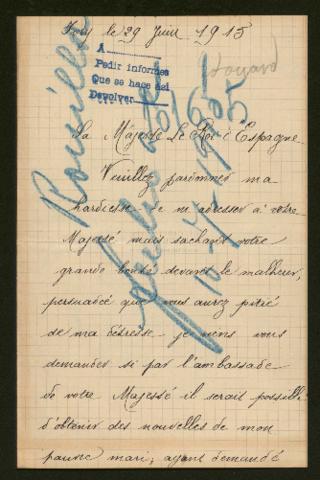 le 29 Juin 1915
A
Pedir informes
Que se hace así
Devolver
Rouilla
Sa Majesté Le Roi d'Espagne
Veuillez pardonner ma
hardiesse de m'adresser à votre
Majesté mais sachant votre
grande bonté devant le malheur,
persuadée que vous aurez pitié
de ma détresse je viens vous
demander si par l'ambassade
de votre Majesté il serait possible
d'obtenir des nouvelles de mon
pauvre mari; ayant demandé